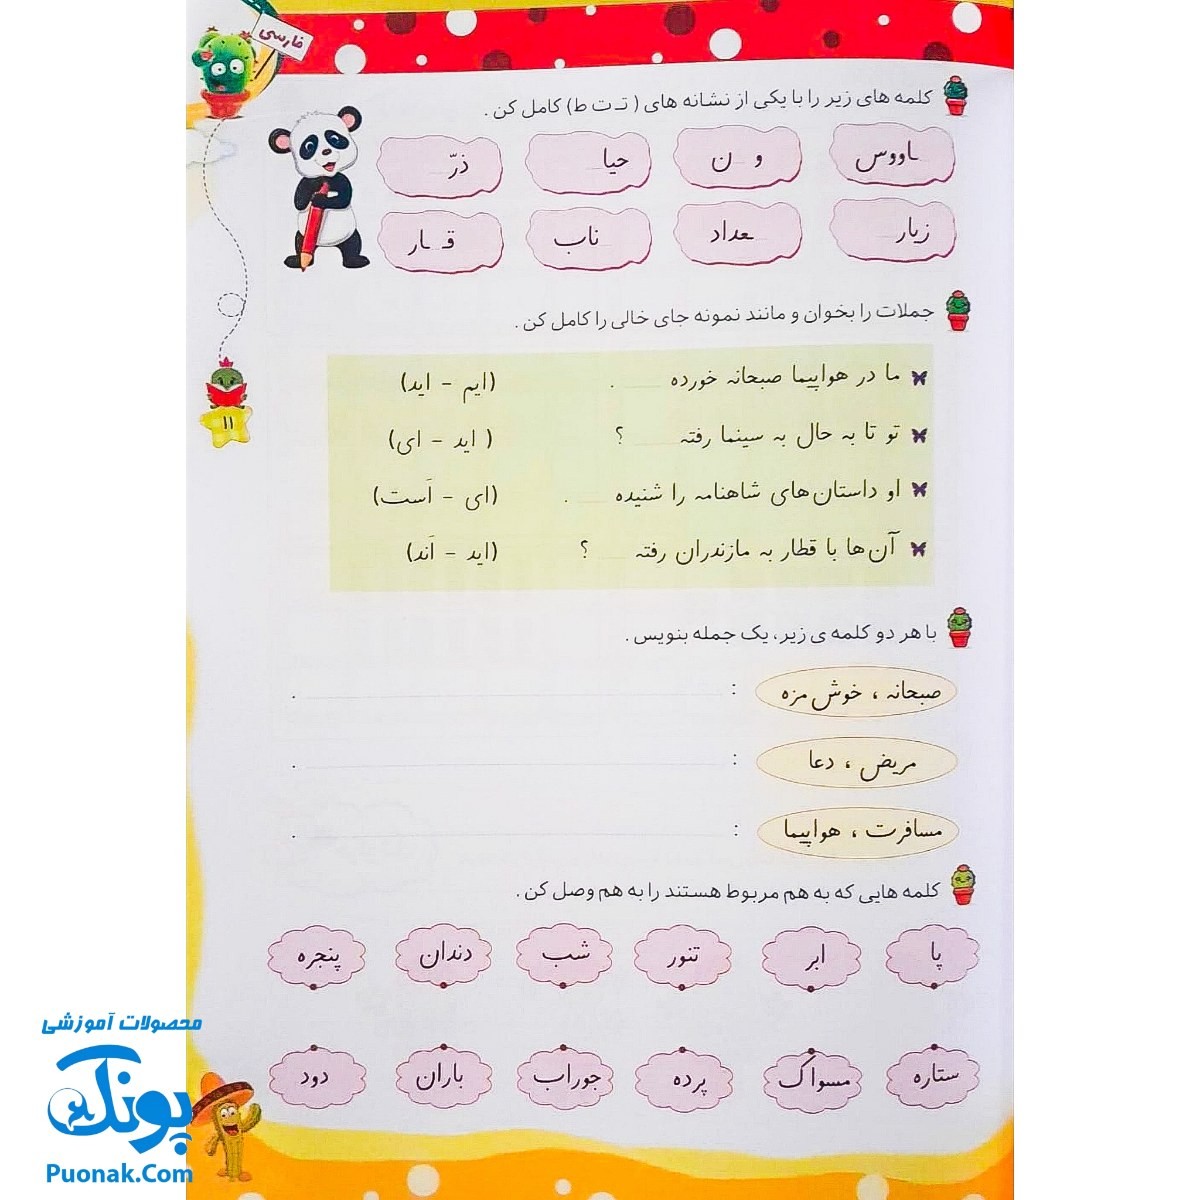 فارسی
کلمه های زیر را با یکی از نشانه های ( تـ ت ط) کامل کن .
ـاووس و ن حیا ذرّ
زیار ـعداد ناب قـ ـار
جملات را بخوان و مانند نمونه جای خالی را کامل کن .
ما در هواپیما صبحانه خورده ____ . (ایم - اید)
تو تا به حال به سینما رفته ____ ؟ ( اید - ای)
او داستان‌های شاهنامه را شنیده ____ . (ای - اَست)
آن‌ها با قطار به مازندران رفته ____ ؟ (اید - اَند)
۱۱
با هر دو کلمه ی زیر، یک جمله بنویس .
صبحانه ، خوش مزه : .
مریض ، دعا : .
مسافرت ، هواپیما : .
کلمه هایی که به هم مربوط هستند را به هم وصل کن .
پا ابر تنور شب دندان پنجره
ستاره مسواک پرده جوراب باران دود
محصولات آموزشی
پونک
Puonak.Com